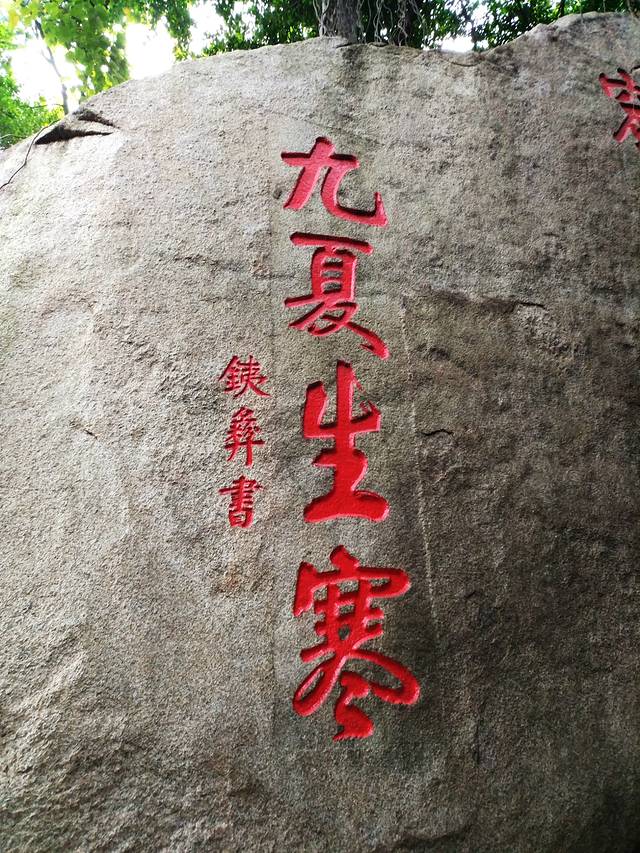 九夏生寒
銕彝書